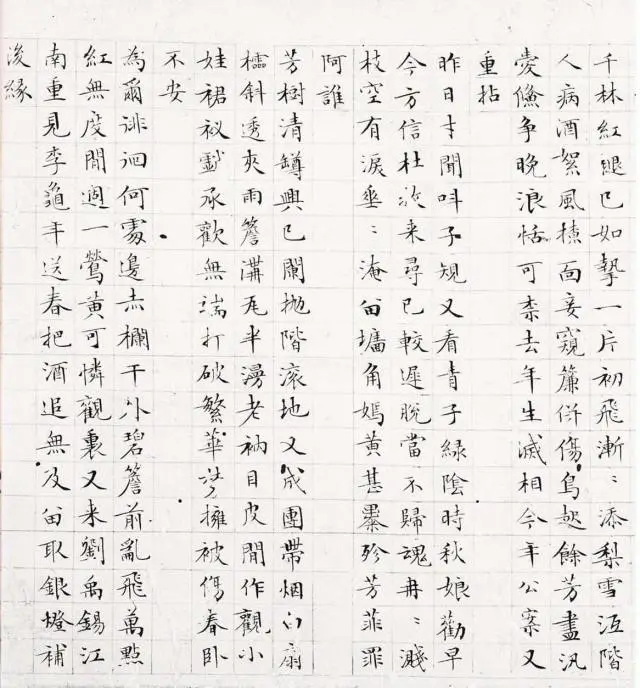 千林紅褪已如摯一片初飛漸〻添梨雪沍階
人病酒絮風撩面妾窺簾併傷鳥起餘芳盡汎
愛儵争晚浪恬可柰去年生滅相今年公案又
重拈
昨日才聞叫子規又看青子綠陰時秋娘勸早
今方信杜牧来尋已較遲脫當不歸魂冉〻濺
枝空有淚垂〻淹留墻角嫣黄甚暴殄芳菲罪
阿誰
芳樹清罇興已闌抛階滚地又成團帶烟白扇
櫺斜透夾雨簷溝瓦半漫老衲目皮閒作觀小
娃裙衩戲承歡無端打破繁華夢擁被傷春卧
不安
為爾徘徊何處邊赤欄干外碧簷前亂飛萬點
紅無度閒過一鶯黄可憐觀裏又来劉禹錫江
南重見李龜年送春把酒追無及留取銀燈補
後緣